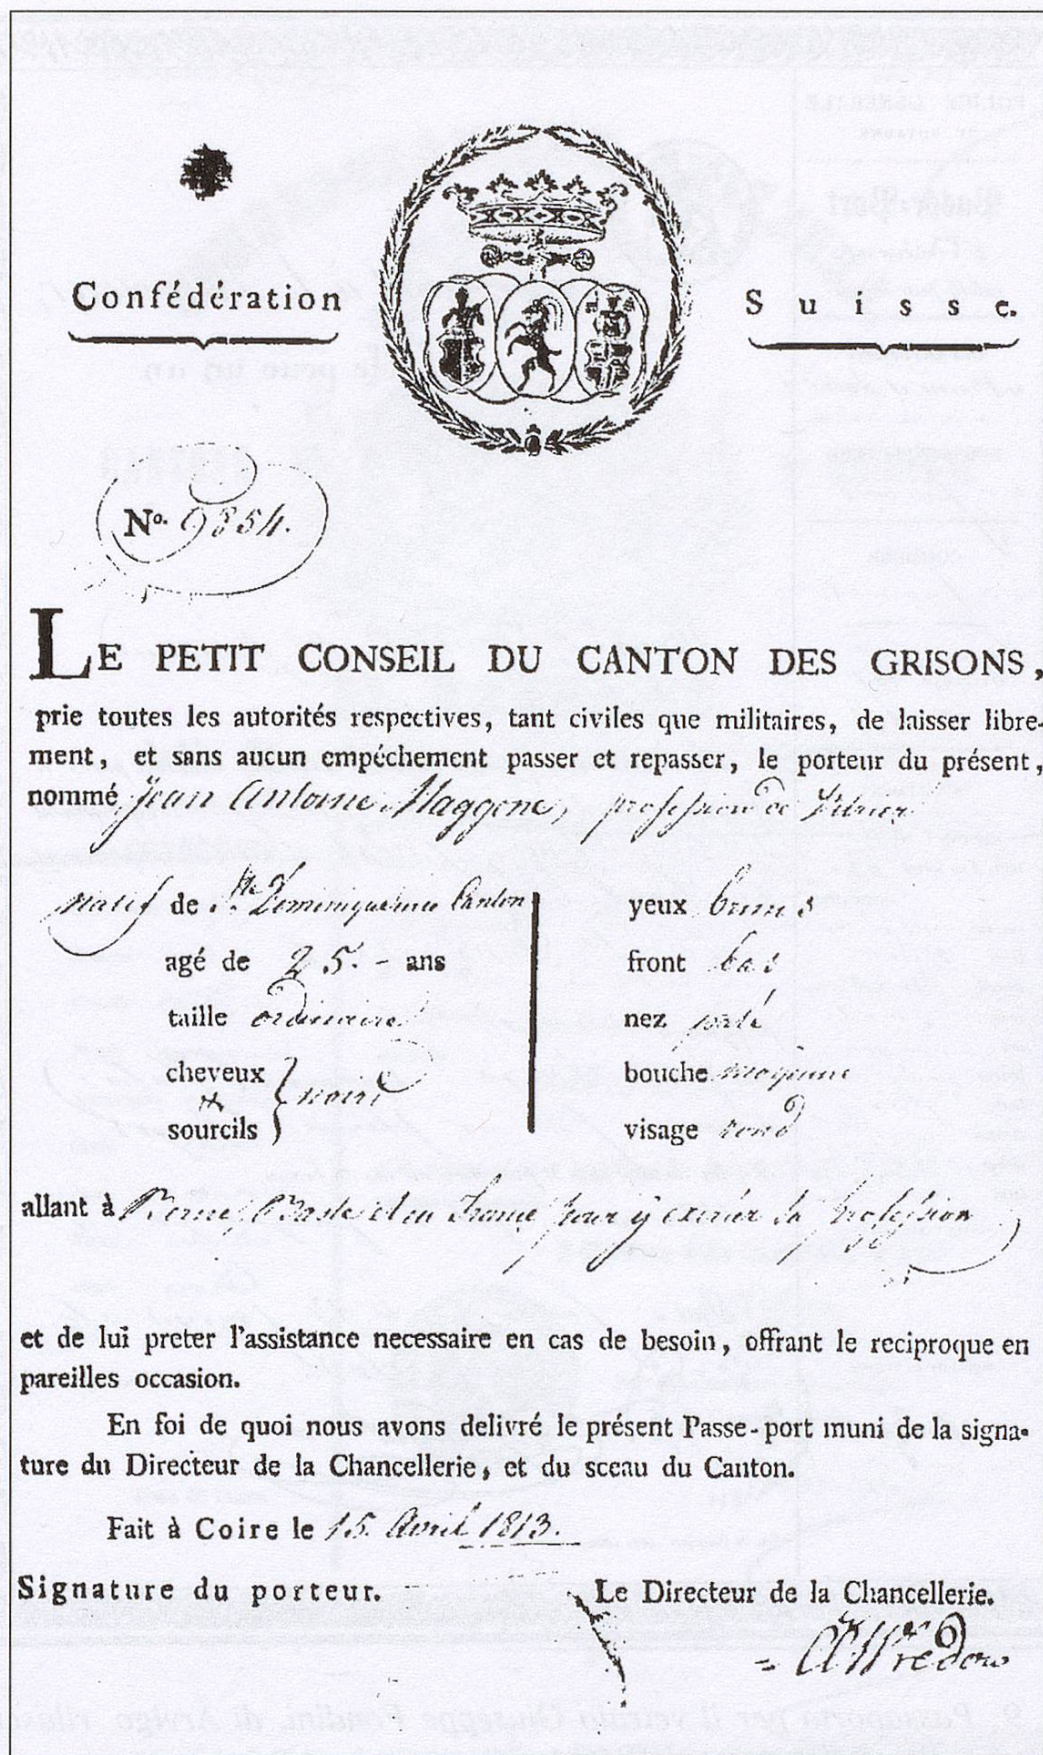 Confédération Suisse.
No. 9854.
LE PETIT CONSEIL DU CANTON DES GRISONS,
prie toutes les autorités respectives, tant civiles que militaires, de laisser libre-
ment, et sans aucun empéchement passer et repasser, le porteur du présent,
nommé Jean Antoine Maggene, profession de Vitrier
natif de Ste. Dominique Canton
agé de 25.- ans
taille ordinaire
cheveux
et noirs
sourcils
yeux bruns
front bas
nez
bouche moyenne
visage rond
allant à Berne, Basle et en France pour y exercer sa profession
et de lui preter l'assistance necessaire en cas de besoin, offrant le reciproque en
pareilles occasion.
En foi de quoi nous avons delivré le présent Passe-port muni de la signa-
ture du Directeur de la Chancellerie, et du sceau du Canton.
Fait à Coire le 15. Avril 1813.
Signature du porteur. Le Directeur de la Chancellerie.